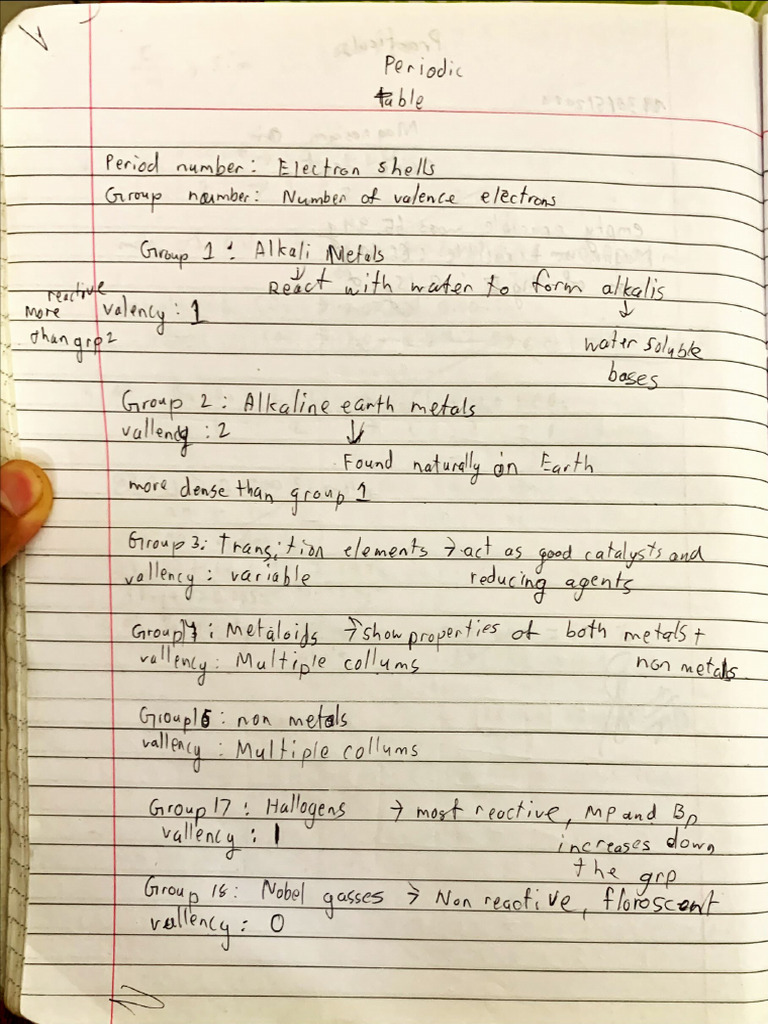 Periodic
table
Period number: Electron shells
Group number: Number of valence electrons
Group 1: Alkali Metals
↓
React with water to form alkalis
reactive
more valency: 1
than grp 2
↓
water soluble
bases
Group 2: Alkaline earth metals
vallency: 2
↓
Found naturally on Earth
more dense than group 1
Group 3: Transition elements → act as good catalysts and
vallency: variable reducing agents
Group : Metaloids → show properties of both metals +
vallency: Multiple collums non metals
Group 16: non metals
vallency: Multiple collums
Group 17: Hallogens → most reactive, MP and BP
vallency: 1 increases down
the grp
Group 18: Nobel gasses → Non reactive, floroscent
vallency: 0